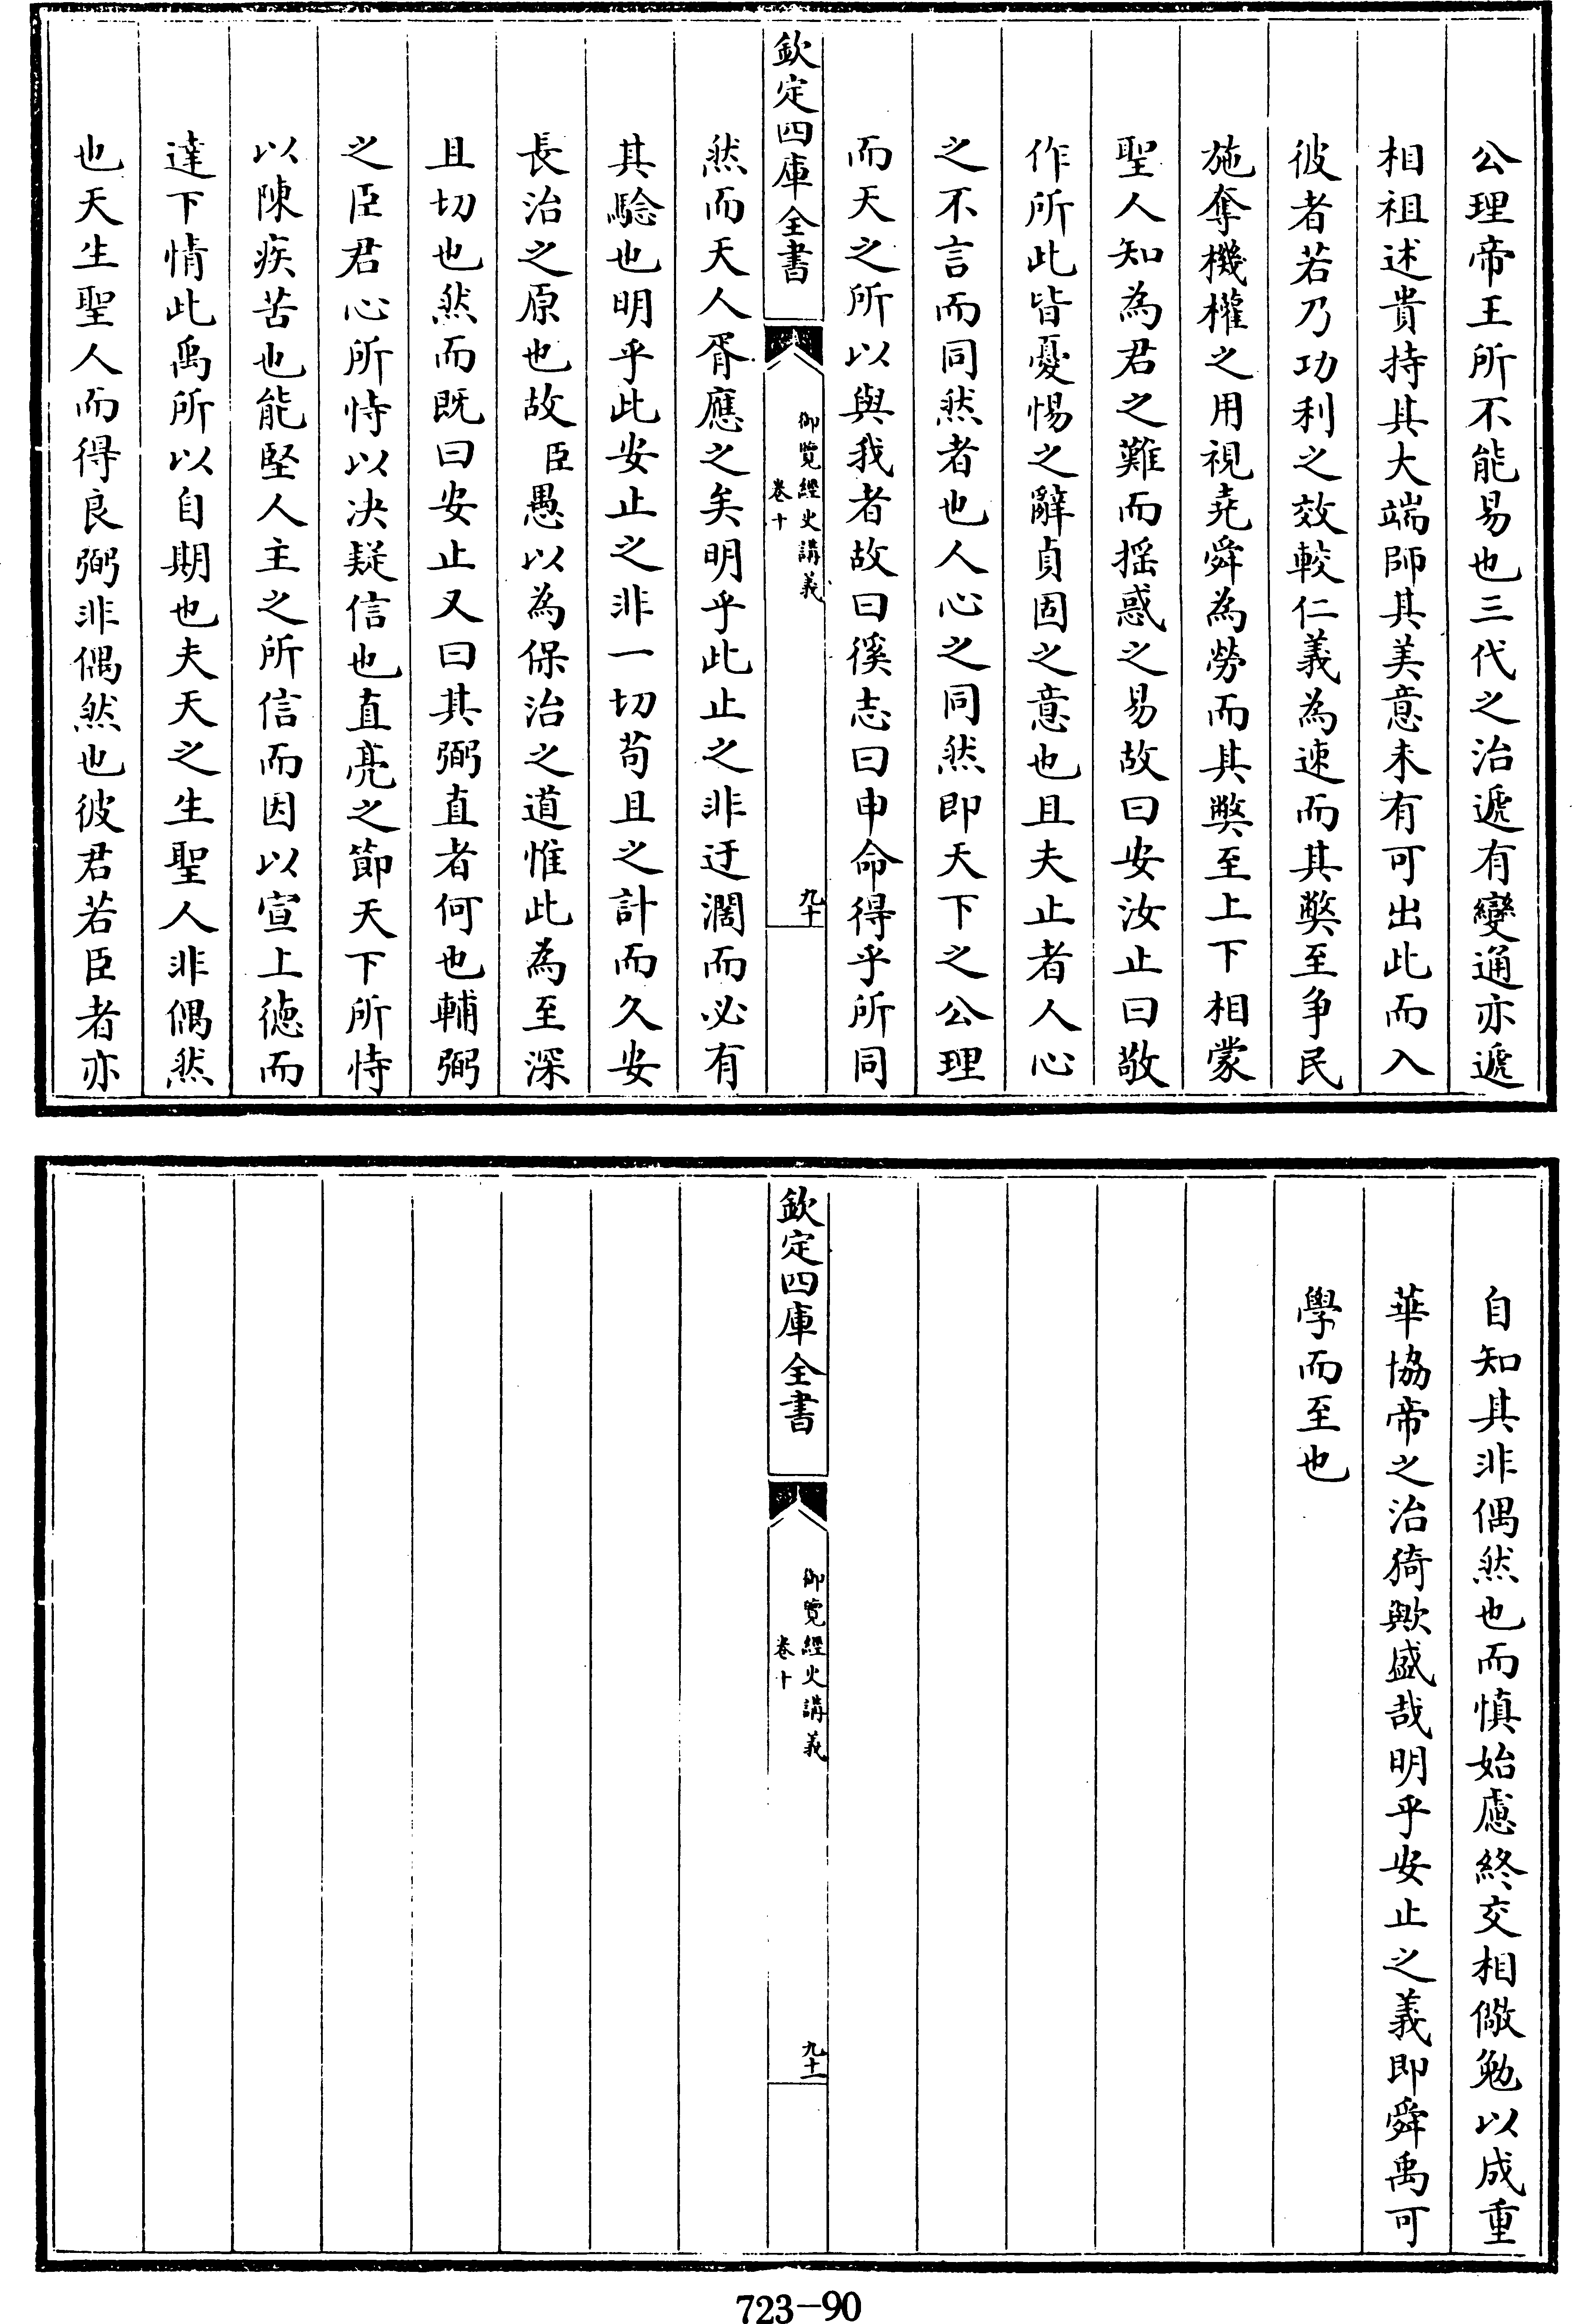 公理帝王所不能易也三代之治遞有變通亦遞
相祖述貴持其大端師其美意未有可出此而入
彼者若乃功利之效較仁義為速而其弊至爭民
施奪機權之用視堯舜為勞而其弊至上下相蒙
聖人知為君之難而揺惑之易故曰安汝止曰敬
作所此皆憂惕之辭貞固之意也且夫止者人心
之不言而同然者也人心之同然即天下之公理
而天之所以與我者故曰徯志曰申命得乎所同
欽定四庫全書
御覽經史講義
卷十
九十
然而天人胥應之矣明乎此止之非迂濶而必有
其驗也明乎此安止之非一切苟且之計而久安
長治之原也故臣愚以為保治之道惟此為至深
且切也然而既曰安止又曰其弼直者何也輔弼
之臣君心所恃以决疑信也直亮之節天下所恃
以陳疾苦也能堅人主之所信而因以宣上徳而
達下情此禹所以自期也夫天之生聖人非偶然
也天生聖人而得良弼非偶然也彼君若臣者亦
自知其非偶然也而慎始慮終交相儆勉以成重
華協帝之治猗歟盛哉明乎安止之義即舜禹可
學而至也
欽定四庫全書
御覽經史講義
卷十
九十一
723-90